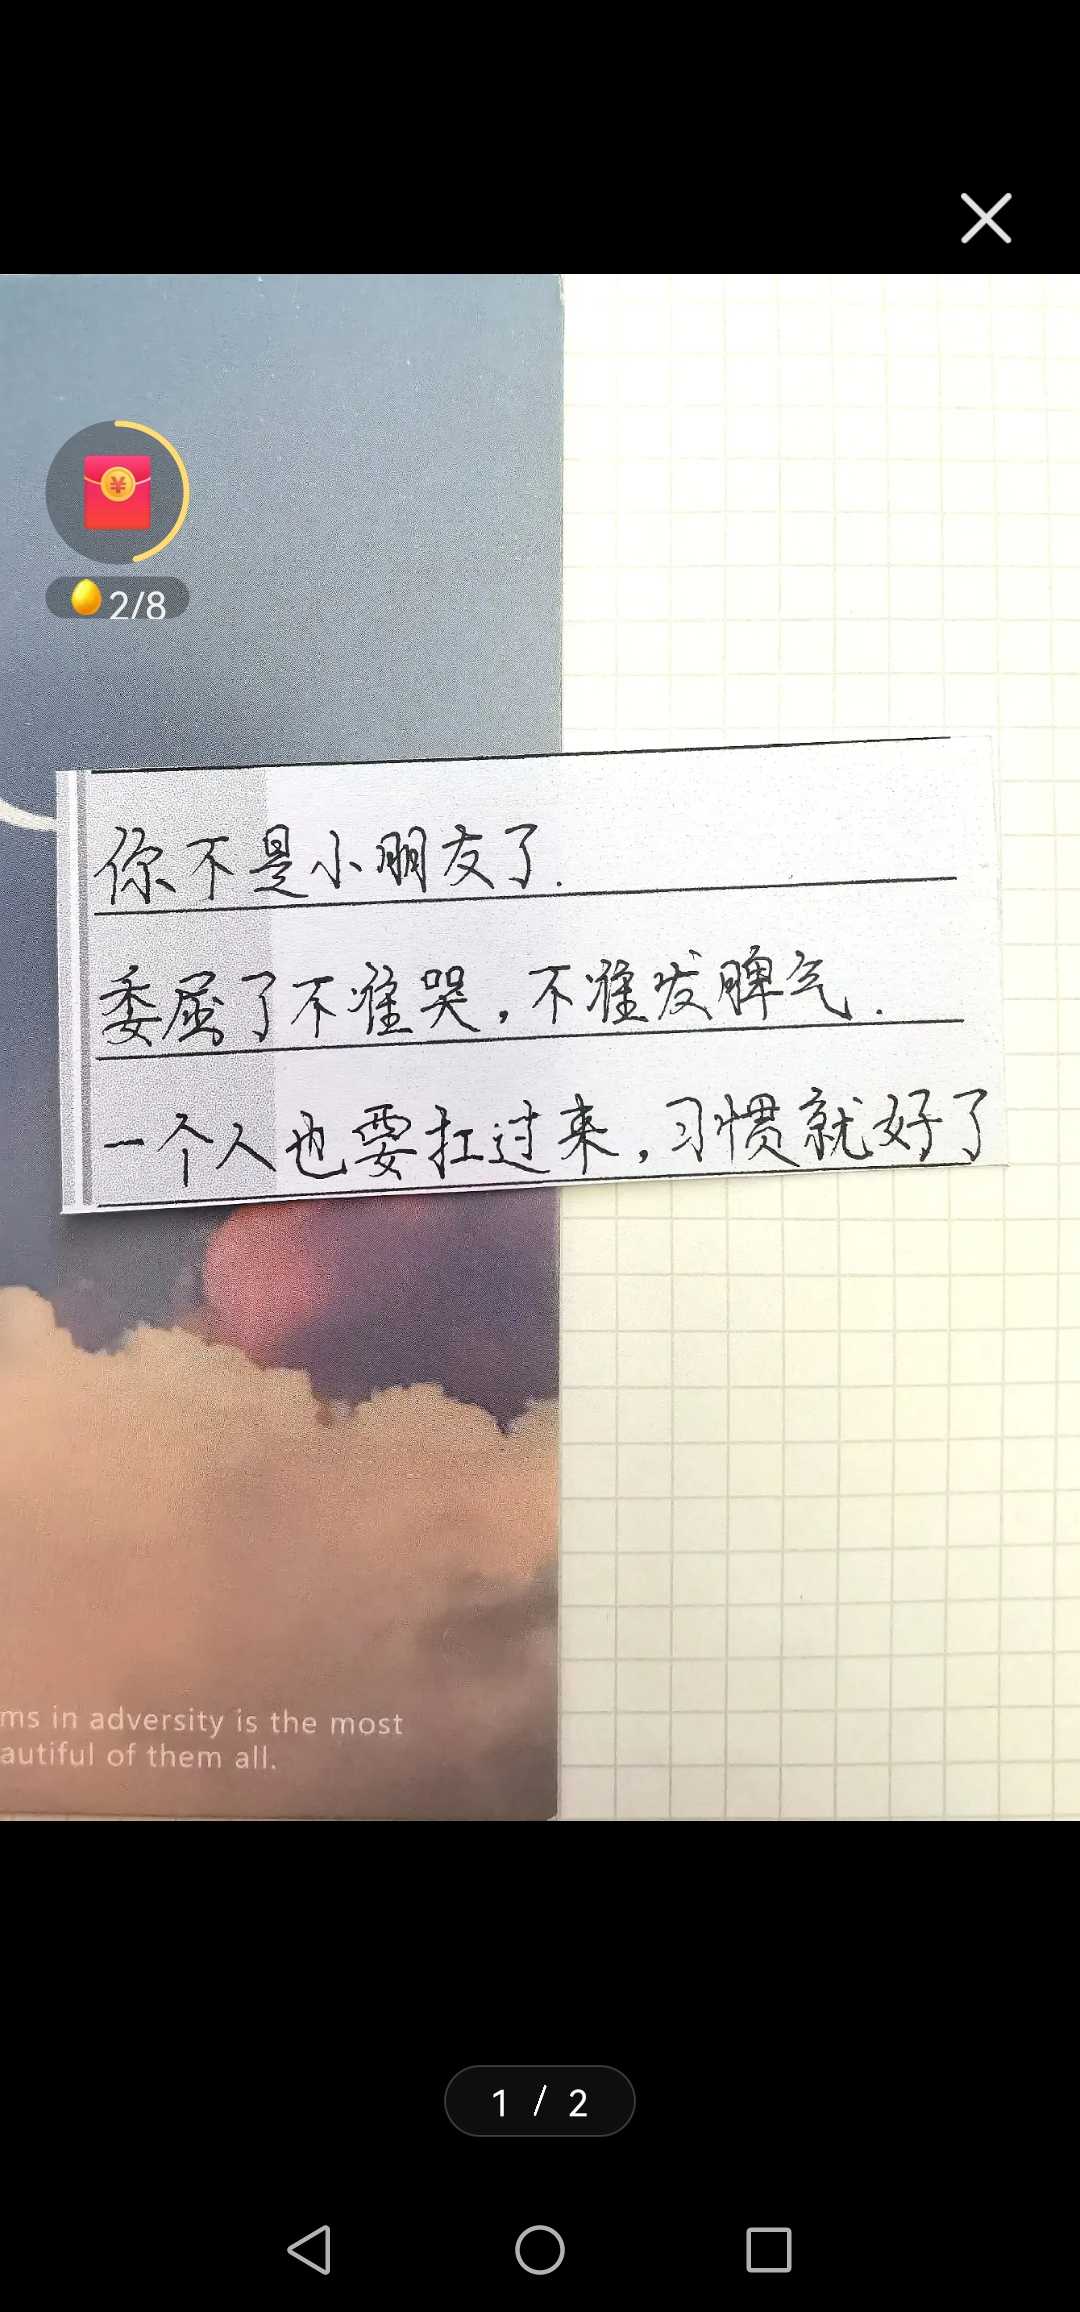 2/8
你不是小朋友了.
委屈了不准哭,不准发脾气.
一个人也要扛过来,习惯就好了
ms in adversity is the most
autiful of them all.
1 / 2